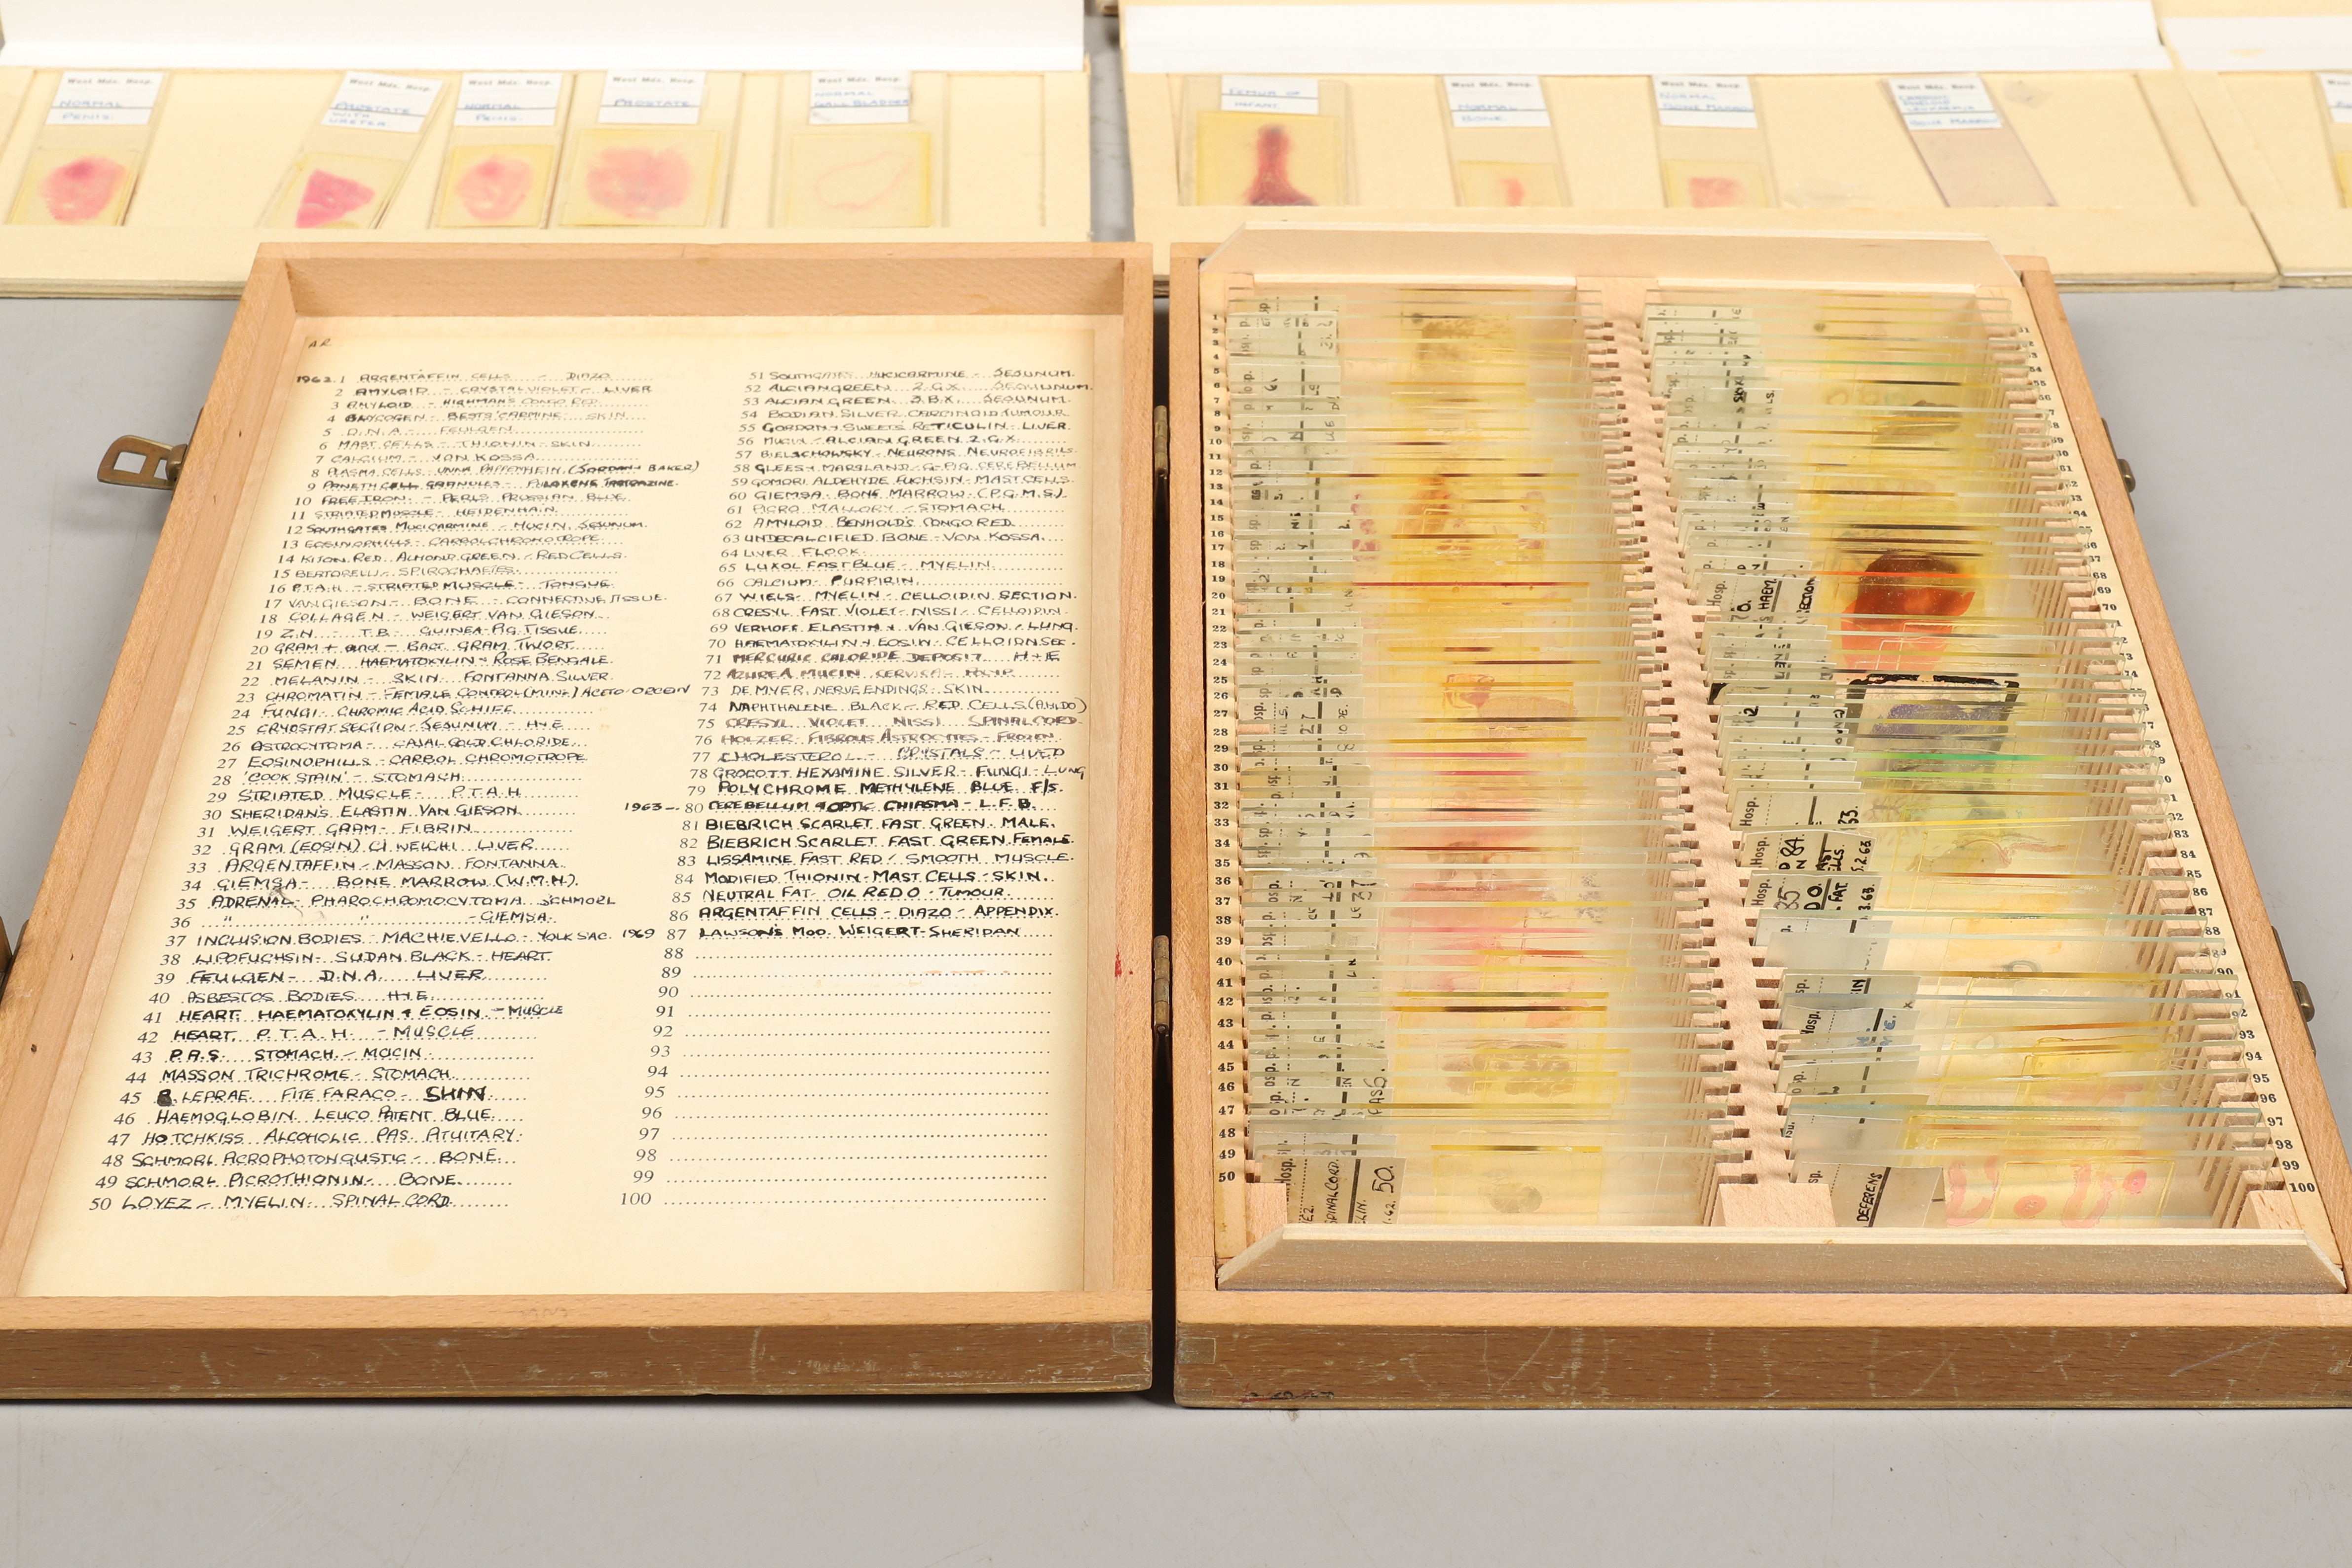 West Mdx. Hosp.
NORMAL
PENIS.
West Mdx. Hosp.
PROSTATE
WITH
URETER.
West Mdx. Hosp.
NORMAL
PENIS.
West Mdx. Hosp.
PROSTATE
West Mdx. Hosp.
NORMAL
GALL BLADDER
FEMUR OF
INFANT
West Mdx. Hosp.
NORMAL
BONE.
West Mdx. Hosp.
NORMAL
BONE MARROW
West Mdx. Hosp.
LEUKAEMIA
BONE MARROW
A.R.
1962. 1 ARGENTAFFIN CELLS - DIAZO
2 AMYLOID - CRYSTAL VIOLET - LIVER
3 AMYLOID - HIGHMANS CONGO RED
4 GLYCOGEN - BESTS CARMINE - SKIN
5 D.N.A - FEULGEN
6 MAST CELLS - THIONIN - SKIN
7 CALCIUM - VON KOSSA
8 PLASMA CELLS UNNA PAPPENHEIN (JORDAN + BAKER)
9 PANETH CELL GRANULES - PHLOXENE TARTRAZINE.
10 FREE IRON - PERLS PRUSSIAN BLUE
11 STRIATED MUSCLE - HEIDENHAIN
12 SOUTHGATES MUCICARMINE - MUCIN, SEJUNUM.
13 EOSINOPHILLS - CARBOLCHROMOTROPE
14 KITON RED. ALMOND GREEN - RED CELLS.
15 BERTORELLI - SPIROCHAETES.
16 P.T.A.H - STRIATED MUSCLE - TONGUE
17 VAN GIESON - BONE - CONNECTIVE TISSUE.
18 COLLAGEN - WEIGERT VAN GIESON
19 Z.N - T.B. GUINEA-PIG TISSUE
20 GRAM + and - BACT GRAM TWORT.
21 SEMEN HAEMATOXYLIN + ROSE BENGALE.
22 MELANIN - SKIN FONTANNA SILVER.
23 CHROMATIN - FEMALE CONTROL (MINE) ACETO-ORCEIN
24 FUNGI - CHROMIC ACID SCHIFF
25 CRYOSTAT SECTION - SEJUNUM - H+E
26 ASTROCYTOMA - CAJAL GOLD CHLORIDE
27 EOSINOPHILLS - CARBOL CHROMOTROPE
28 'COOK STAIN' - STOMACH
29 STRIATED MUSCLE - P.T.A.H
30 SHERIDAN'S ELASTIN VAN GIESON
31 WEIGERT GRAM - FIBRIN
32 GRAM (EOSIN) CL WELCHI LIVER
33 ARGENTAFFIN - MASSON FONTANNA
34 GIEMSA - BONE MARROW (W.M.H).
35 ADRENAL - PHAROCHROMOCYTOMA SCHMORL
36 " " - GIEMSA
37 INCLUSION BODIES - MACHIEVELLO - YOLK SAC.
38 LIPOFUCHSIN - SUDAN BLACK - HEART
39 FEULGEN - D.N.A. LIVER
40 ASBESTOS BODIES H+E
41 HEART HAEMATOXYLIN + EOSIN - MUSCLE
42 HEART P.T.A.H. - MUSCLE
43 P.A.S. STOMACH - MUCIN
44 MASSON TRICHROME - STOMACH
45 B. LEPRAE FITE FARACO - SKIN
46 HAEMOGLOBIN LEUCO PATENT BLUE
47 HOTCHKISS ALCOHOLIC PAS. PITUITARY
48 SCHMORL PICROPHOTONGUSTIC - BONE
49 SCHMORL PICROTHIONIN - BONE
50 LOYEZ - MYELIN - SPINAL CORD
51 SOUTHGATES MUCICARMINE - SEJUNUM.
52 ALCIAN GREEN 2.G.X. SEJUNUM.
53 ALCIAN GREEN 3.B.X. SEJUNUM.
54 BODIAN SILVER CARCINOID TUMOUR
55 GORDON + SWEETS RETICULIN - LIVER
56 MUCIN - ALCIAN GREEN 2.G.X.
57 BIELSCHOWSKY - NEURONS NEUROFIBRILS
58 GLEES + MARSLAND - G-PIG CEREBELLUM
59 GOMORI ALDEHYDE FUCHSIN - MAST CELLS
60 GIEMSA BONE MARROW - (P.G.M.S)
61 PICRO MALLORY - STOMACH
62 AMYLOID BENHOLD'S CONGO RED
63 UNDECALCIFIED BONE - VON KOSSA
64 LIVER FLOOK
65 LUXOL FAST BLUE - MYELIN
66 CALCIUM - PURPIRIN
67 WIELS - MYELIN - CELLOIDIN SECTION.
68 CRESYL FAST VIOLET - NISSL - CELLOIDIN.
69 VERHOFF ELASTIN + VAN GIESON - LUNG.
70 HAEMATOXYLIN + EOSIN - CELLOIDN SEC.
71 MERCURIC CALORIDE DEPOSIT H+E
72 AZURE A MUCIN CERVICA -
73 DE MYER. NERVE ENDINGS. SKIN.
74 NAPHTHALENE BLACK - RED CELLS (AMIDO)
75 CRESYL VIOLET NISSL SPINAL CORD
76 HOLZER FIBROUS ASTROCYTES - FROZEN
77 CHOLESTEROL - CRYSTALS - LIVED
78 GROCOTT HEXAMINE SILVER - FUNGI - LUNG
79 POLYCHROME METHYLENE BLUE F/S.
1963 - 80 CEREBELLUM + OPTIC CHIASMA - L.F.B.
81 BIEBRICH SCARLET FAST GREEN. MALE.
82 BIEBRICH SCARLET FAST GREEN. FEMALE.
83 LISSAMINE FAST RED / SMOOTH MUSCLE.
84 MODIFIED THIONIN - MAST CELLS - SKIN.
85 NEUTRAL FAT - OIL RED O - TUMOUR.
86 ARGENTAFFIN CELLS - DIAZO - APPENDIX.
1969 87 LAWSON'S MOD. WEIGERT-SHERIDAN
88
89
90
91
92
93
94
95
96
97
98
99
100
Hosp.
SPINAL CORD.
50.
DEFERENS